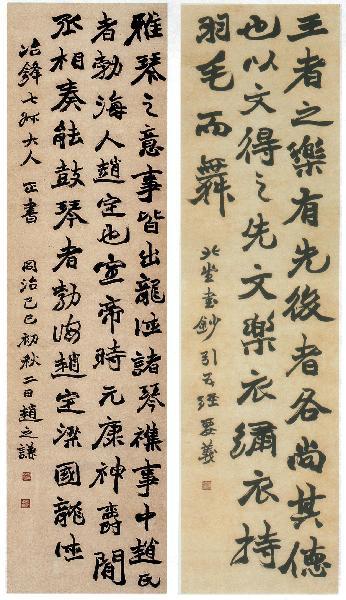 王者之樂有先後者各尚其德
也以文得之先文樂衣繡衣持
羽毛而舞
北堂書鈔引五經要義
雅琴之意事皆出龍德諸琴襍事中趙氏
者勃海人趙定也宣帝時元康神爵間
丞相奏能鼓琴者勃海趙定梁國龍德
冶鋒七姊大人正書 同治己巳初秋二日趙之謙